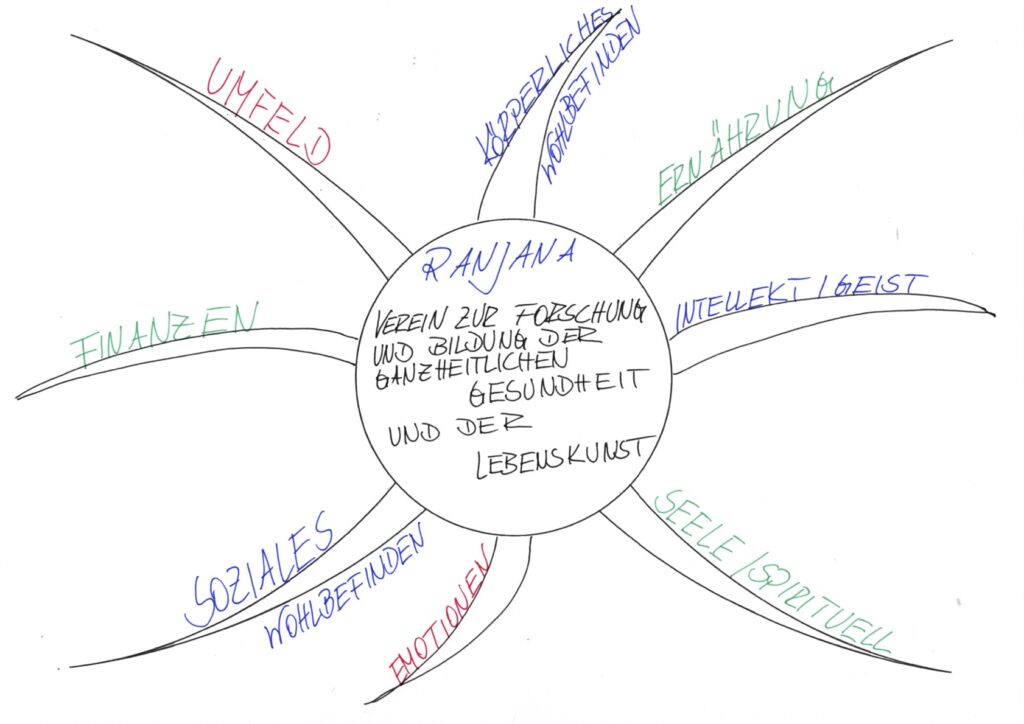 KÖRPERLICHES
WOHLBEFINDEN
UMFELD
ERNÄHRUNG
RANJANA
INTELLEKT/GEIST
VEREIN ZUR FORSCHUNG
FINANZEN
UND BILDUNG DER
GANZHEITLICHEN
GESUNDHEIT
UND DER
LEBENSKUNST
SEELE/SPIRITUELL
SOZIALES
WOHLBEFINDEN
EMOTIONEN